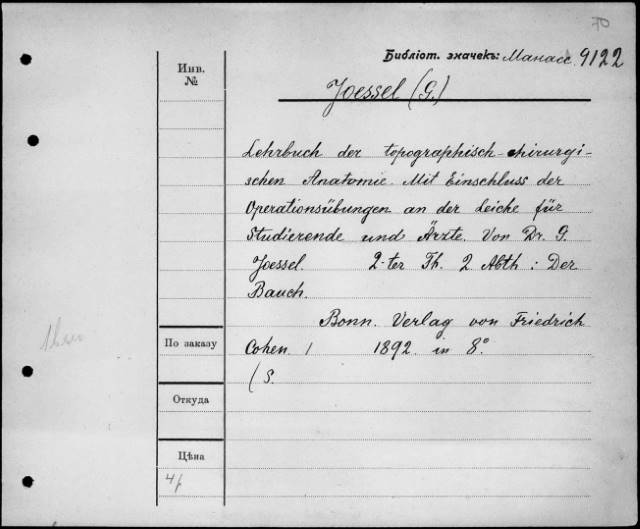 70
Библіот. значекъ: Манасс. 9122
Инв.
№
Joessel (G.)
Lehrbuch der topographisch-chirurgi-
schen Anatomie. Mit Einschluss der
Operationsübungen an der Leiche für
Studierende und Ärzte. Von Dr. G.
Joessel. 2-ter Th. 2 Abth: Der
Bauch.
Bonn. Verlag von Friedrich
По заказу
Cohen. 1892. in 8°.
(S.
Откуда
Цѣна